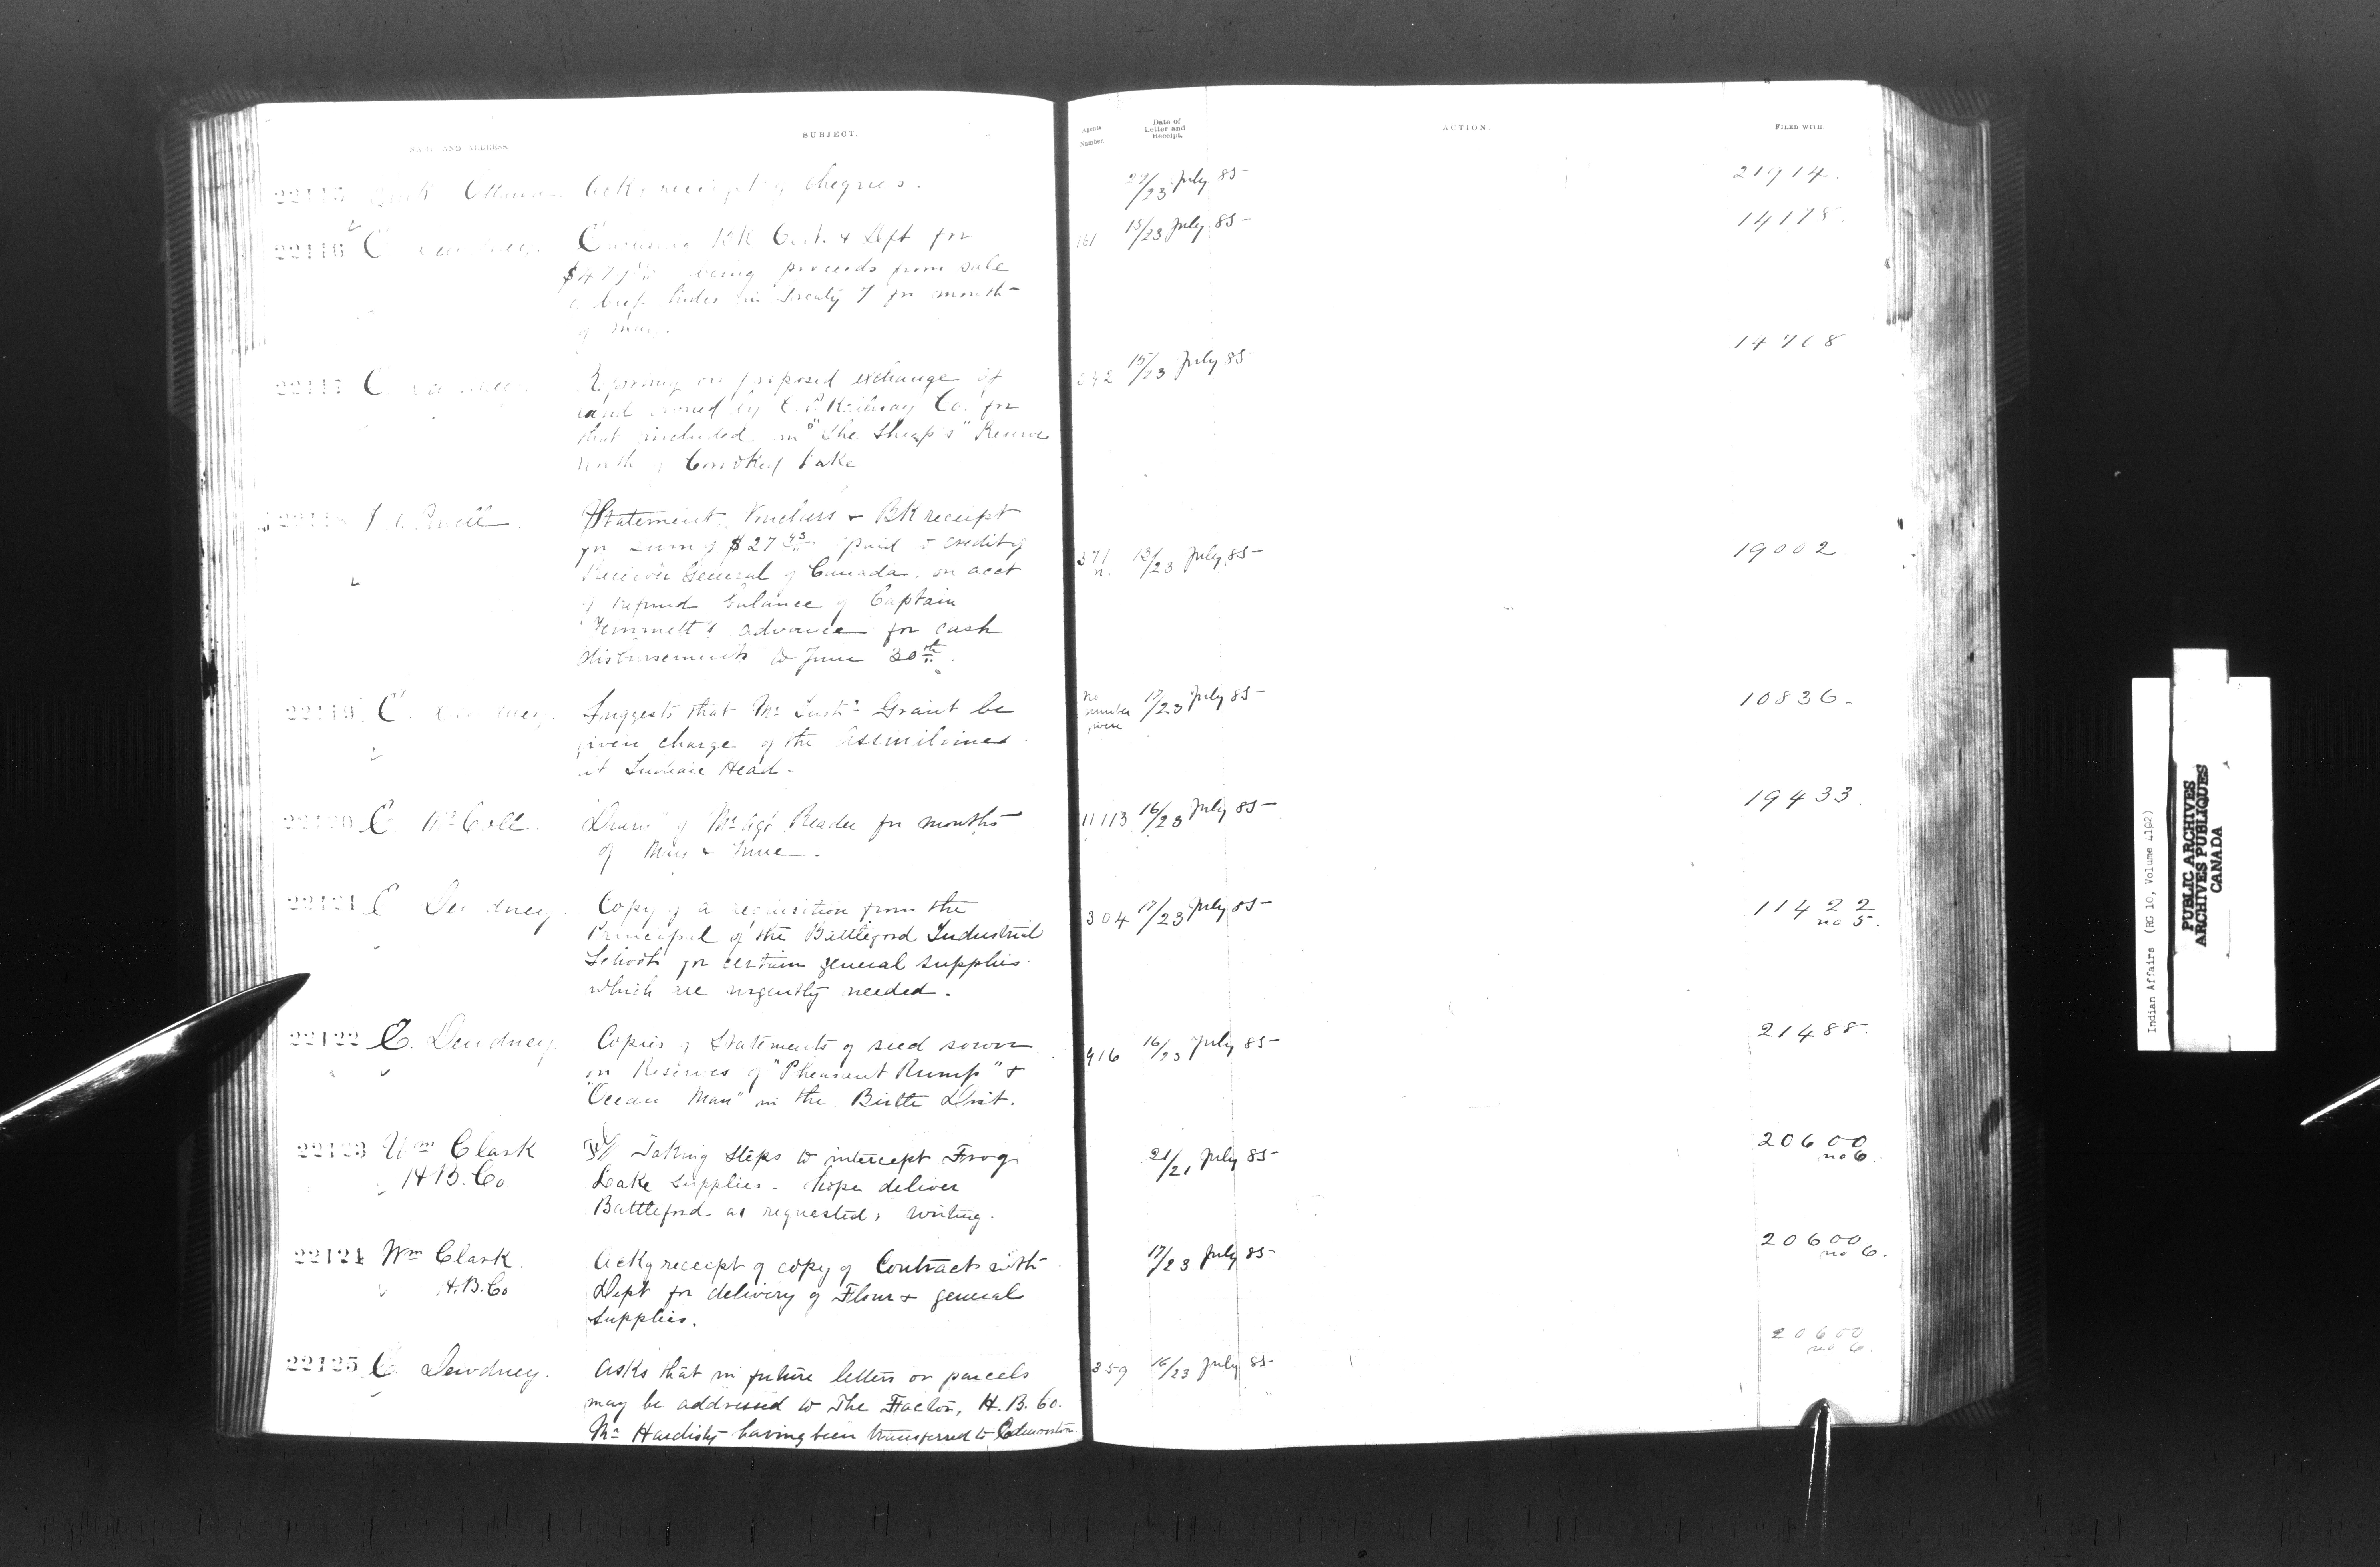 NAME AND ADDRESS
SUBJECT.
Agents Number.
Date of Letter and Receipt.
ACTION.
FILED WITH.
22115 Ottawa Ackg receipt of cheques. 22/23 July 85 21914.
22116 E. Dewdney. Bk Cert. & Dft for 161 15/23 July 85 14178.
being proceeds from sale
of beef hides in Treaty 7 for month
of May.
22117 E. Dewdney. Reporting on proposed exchange of 242 15/23 July 85 14768
land owned by C. P. Railway Co. for
that included in "The Sheep's" Reserve
North of Crooked Lake
22118 Powell. Statement, Vouchers & Bk receipt
for sum of $27 43 paid to credit of
Receiver General of Canada. on acct 371 n. 13/23 July 85 19002
of refund balance of Captain
advance for cash
disbursements to June 30th.
22119 E. Dewdney. Suggests that Mr Grant be no number given 17/23 July 85 10836
given charge of the Assiniboines
at Indian Head
22120 E. McColl. Diary of Mr Agt Reader for months 11113 16/23 July 85 19433.
of May & June.
22121 E. Dewdney. Copy of a requisition from the 304 17/23 July 85 11422
Principal of the Battleford Industrial no 5.
School for certain general supplies
which are urgently needed.
22122 E. Dewdney. Copies of Statements of seed sown 916 16/23 July 85 21488.
on Reserves of "Pheasant Rump" &
"Ocean Man" in the Birtle Dist.
22123 Wm Clark Tel/ Taking steps to intercept Frog 21/21 July 85 20600
H B. Co. Lake Supplies. hope deliver no 6.
Battleford as requested, writing.
22124 Wm Clark. Ackg receipt of copy of Contract with 17/23 July 85 20600
H. B. Co Dept for delivery of Flour & general no 6.
supplies.
22125 E. Dewdney. Asks that in future letters or parcels 359 16/23 July 85 20600
may be addressed to The Factor, H. B. Co. no 6.
Mr Hardisty having been transferred to Edmonton
Indian Affairs (RG 10, Volume 4102)
PUBLIC ARCHIVES
ARCHIVES PUBLIQUES
CANADA